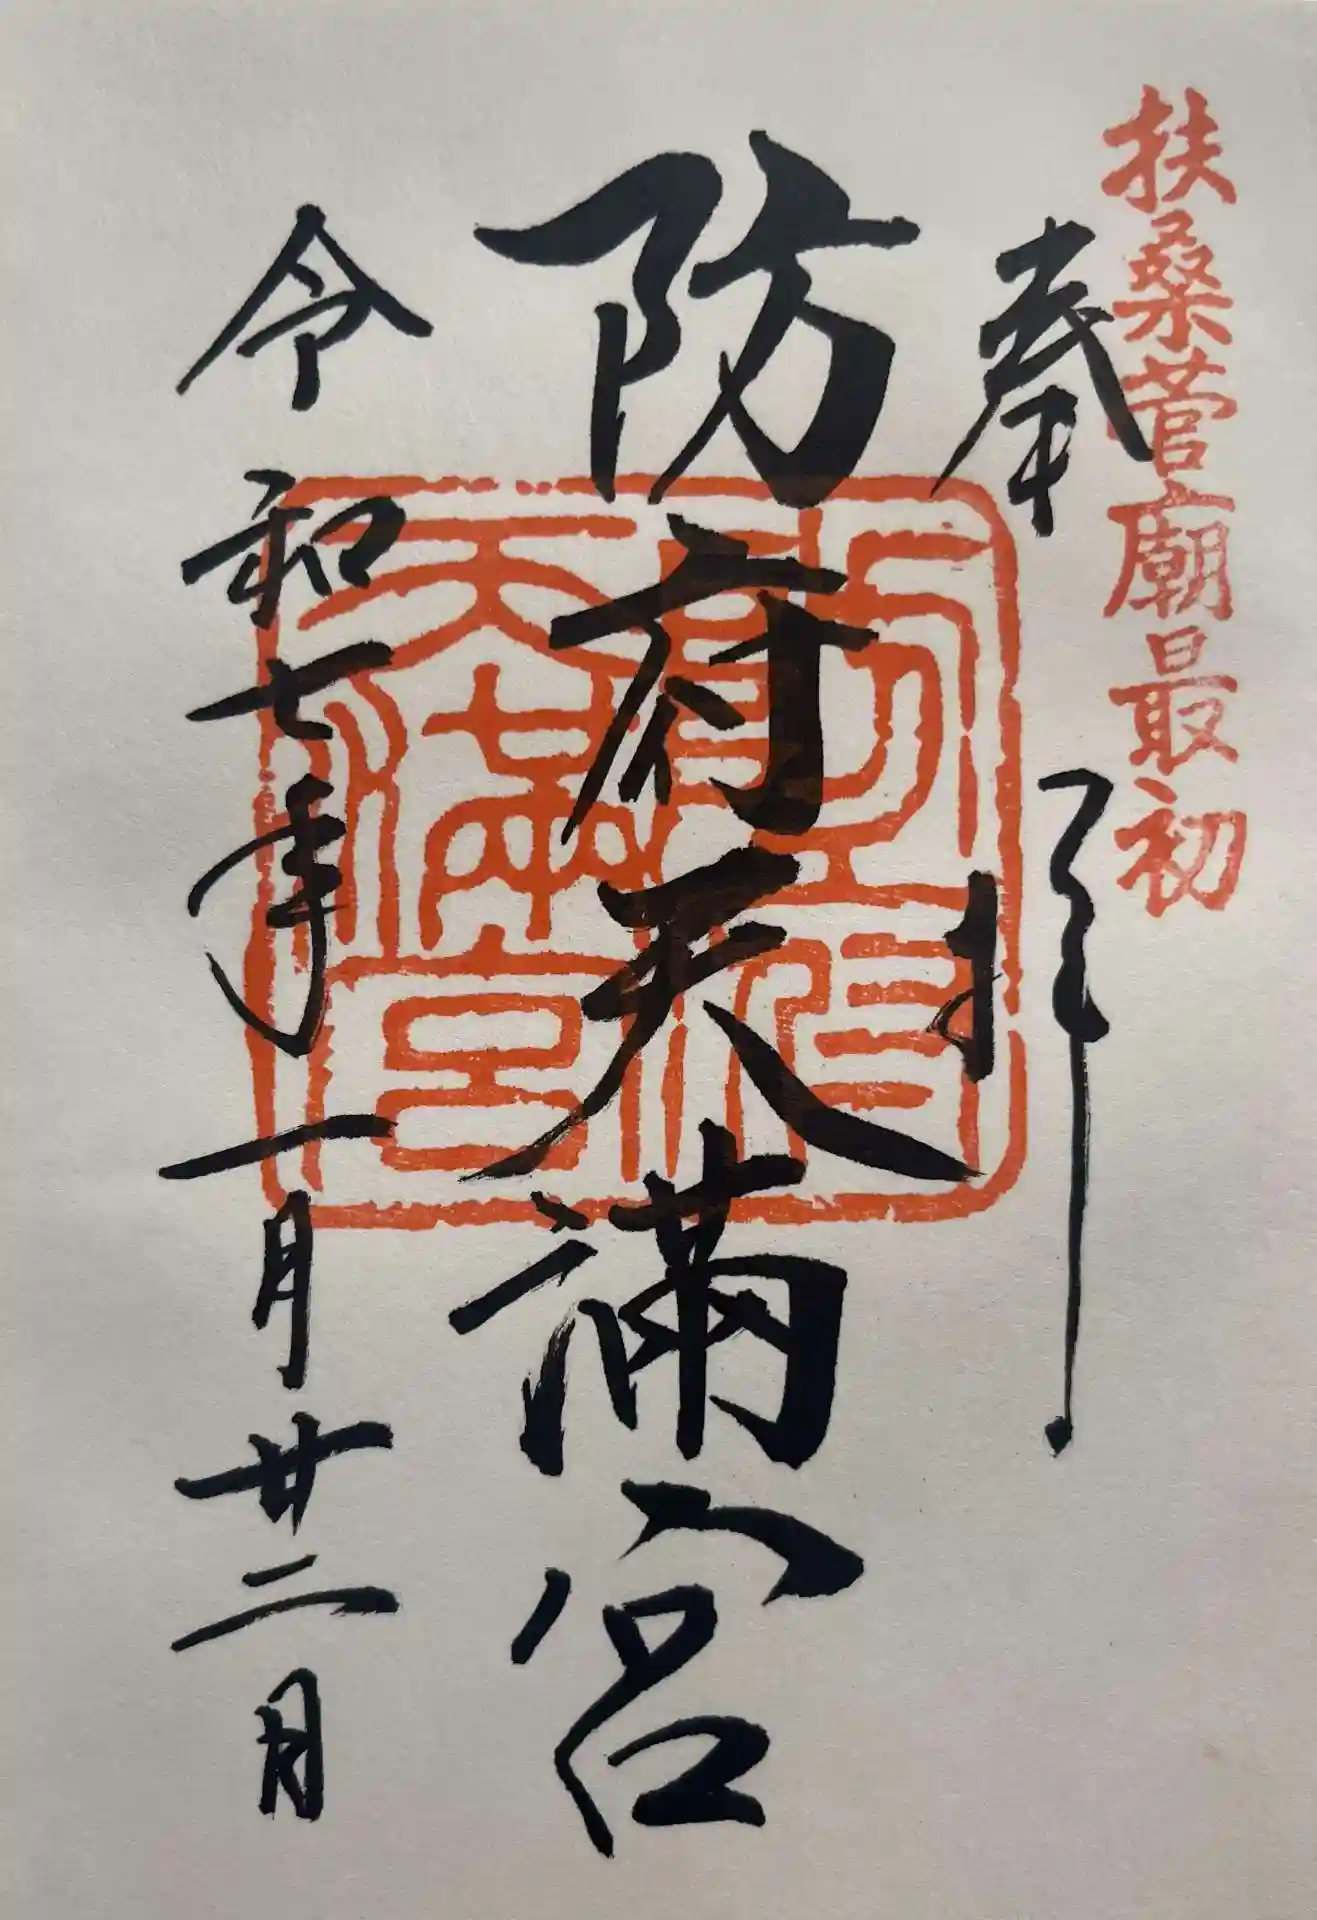 扶桑菅廟最初
奉拝
防府天満宮
令和七年一月廿二日